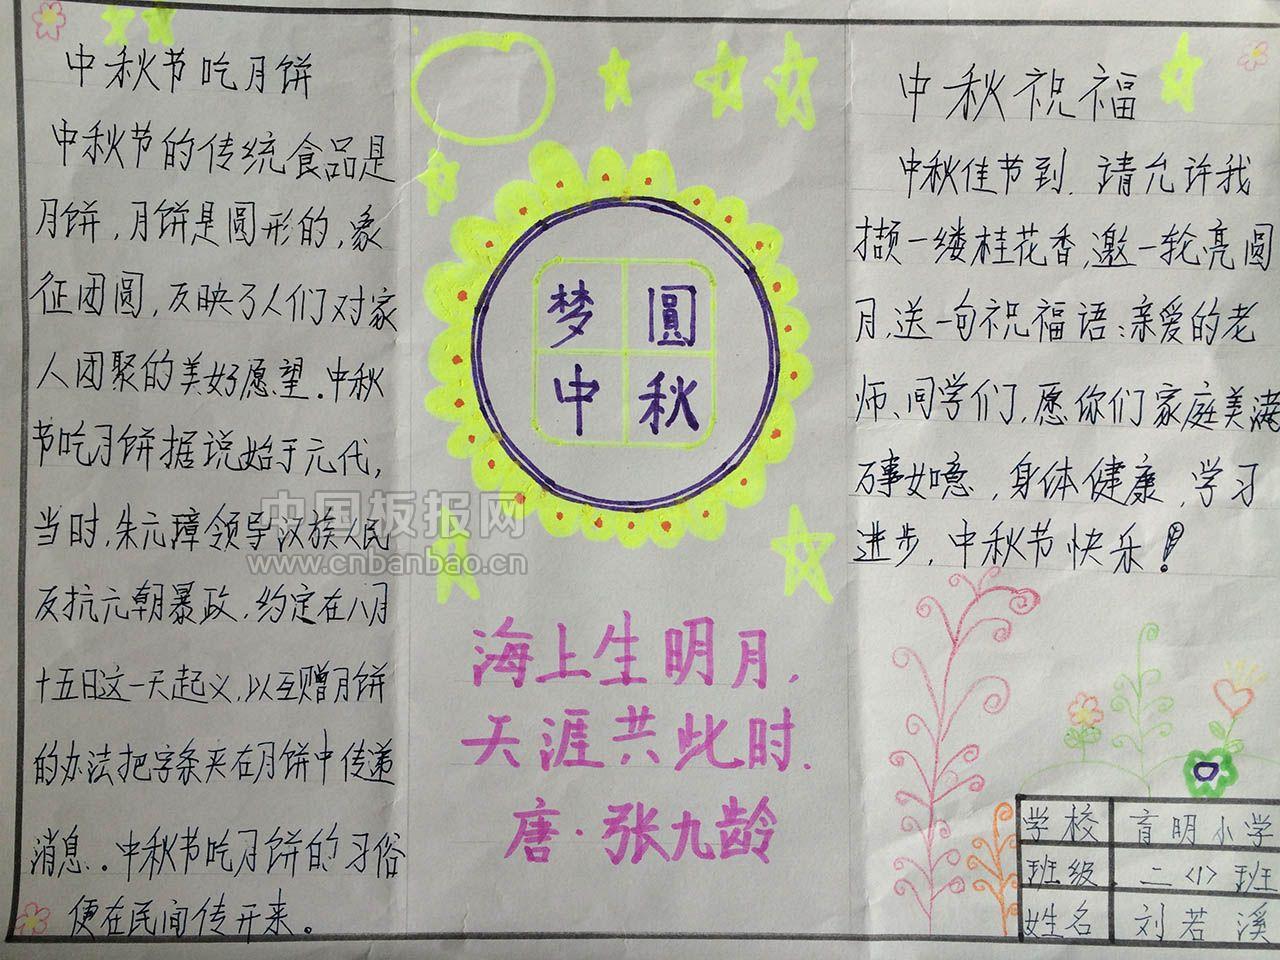 中秋节吃月饼
中秋节的传统食品是
月饼,月饼是圆形的,象
征团圆,反映了人们对家
人团聚的美好愿望.中秋
节吃月饼据说始于元代,
当时,朱元璋领导汉族人民
反抗元朝暴政,约定在八月
十五日这一天起义,以互赠月饼
的办法把字条夹在月饼中传递
消息.中秋节吃月饼的习俗
便在民间传开来。
梦圆
中秋
海上生明月,
天涯共此时.
唐·张九龄
中秋祝福
中秋佳节到.请允许我
撷一缕桂花香,邀一轮亮圆
月,送一句祝福语:亲爱的老
师、同学们,愿你们家庭美满
万事如意,身体健康,学习
进步,中秋节快乐!
学校 育明小学
班级 二<1>班
姓名 刘若溪
中国板报网
www.cnbanbao.cn